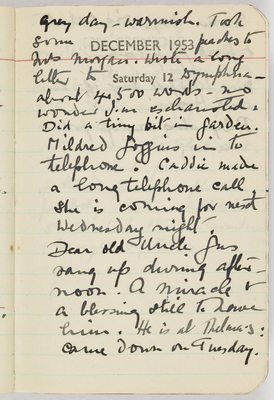 grey day - warmish. Took
some peaches to
DECEMBER 1953
Mrs Morgan. Wrote a long
letter to Symphna -
Saturday 12
about 4,500 words - no
wonder I'm exhausted.
Did a tiny bit in garden.
Mildred Goggins in to
telephone. Caddie made
a long telephone call.
She is coming for next
Wednesday night.
Dear old Uncle Gus
rang up during after-
noon. A miracle &
a blessing still to have
him. He is at Thelma's:
came down on Tuesday.